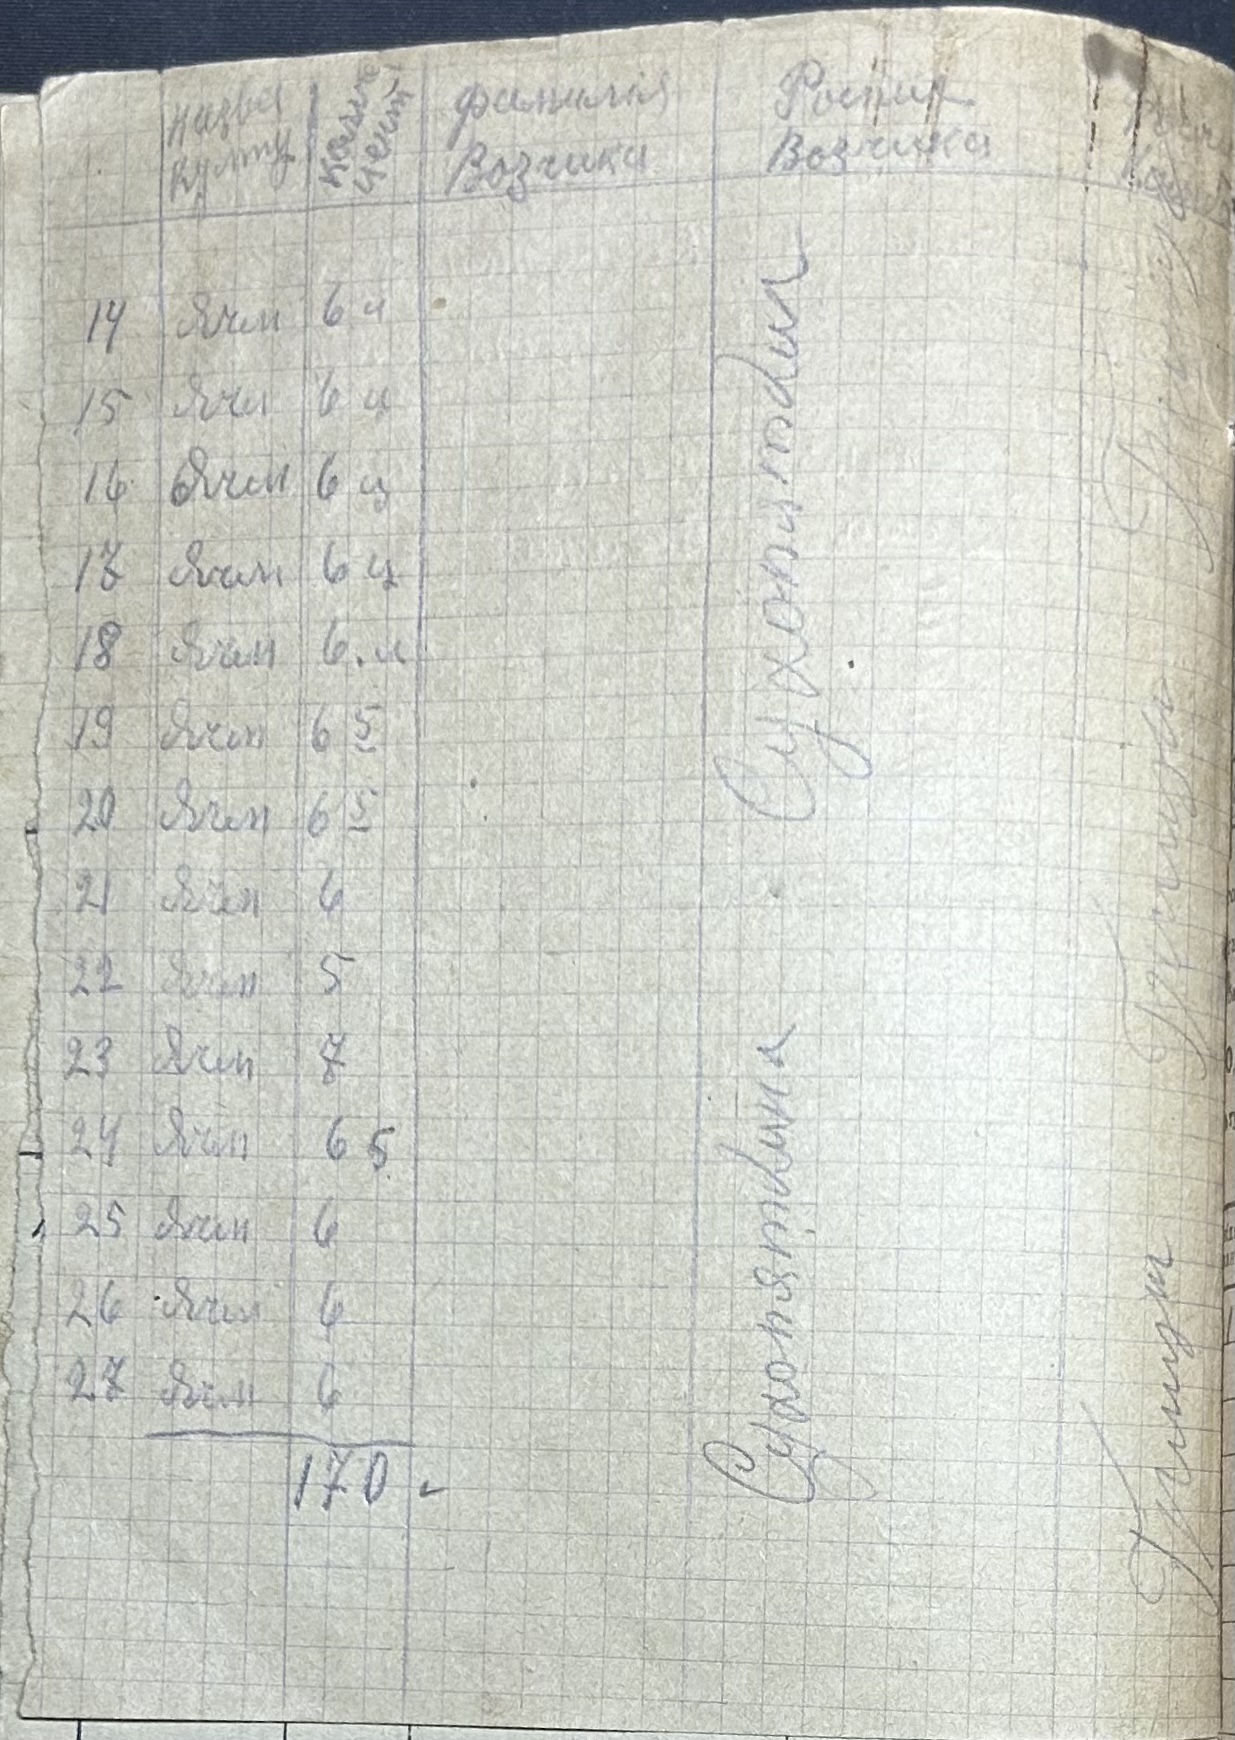 Назва Культу
Колич Цент
Фамилия Возчика
Роспис Возчика
14 Ячм 6 ц
15 Ячм 6 ц
16 Ячм 6 ц
17 Ячм 6 ц
18 Ячм 6. ц
19 Ячм 6 5
20 Ячм 6 5
21 Ячм 6
22 Ячм 5
23 Ячм 7
24 Ячм 6 5
25 Ячм 6
26 Ячм 6
27 Ячм 6
170
Сухопяткин
Сухопяткина